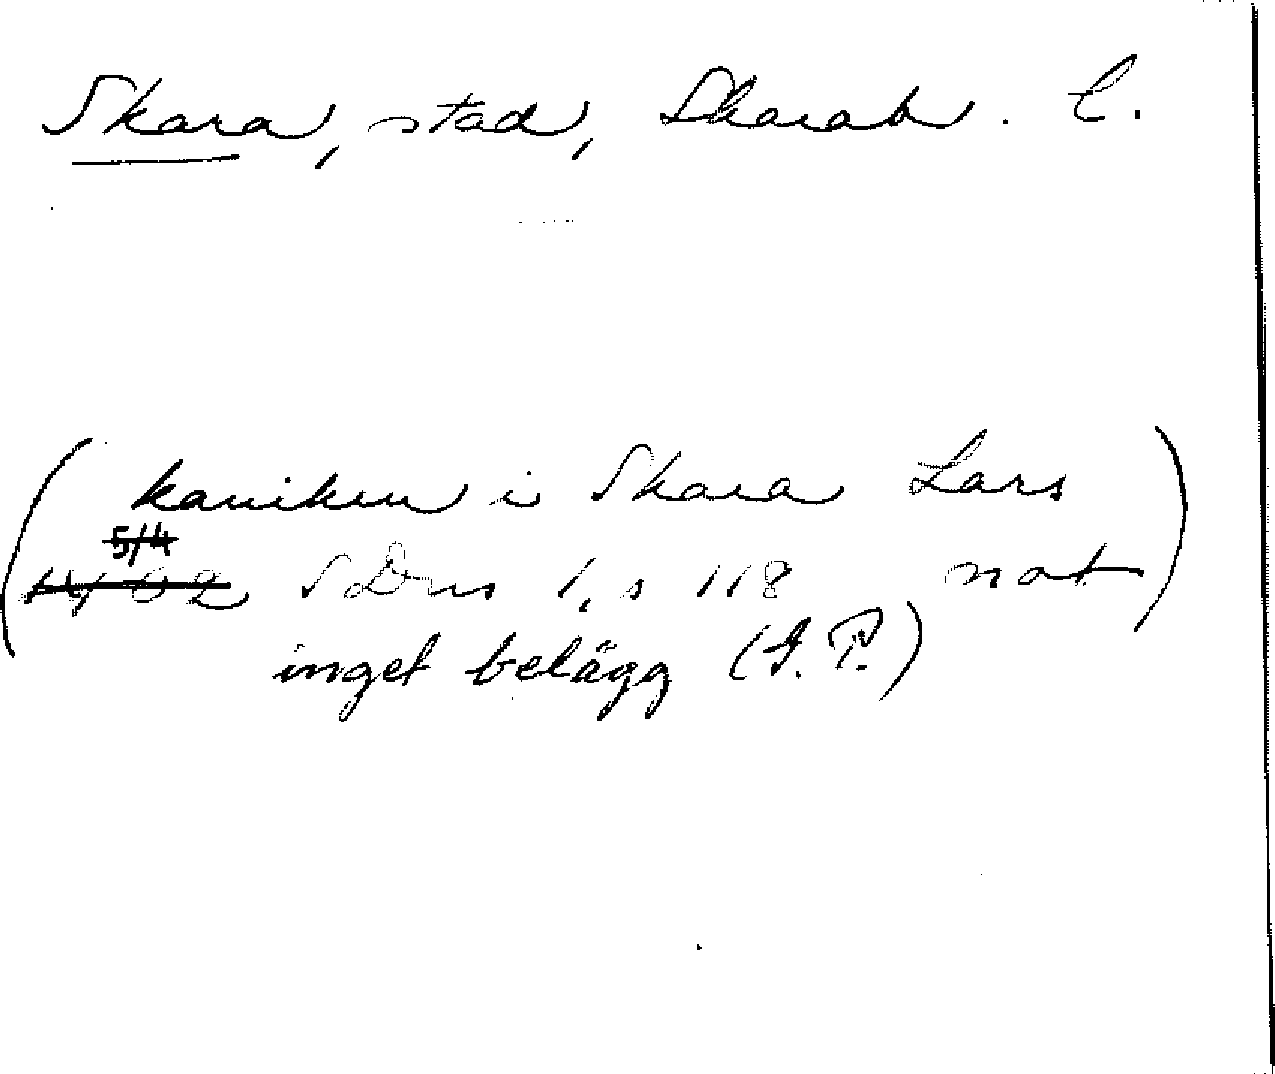 Skara, stad, Skarab. l.
(kaniken i Skara Lars
5/4
1402 SDns 1, s 118 not)
inget belägg (G. P.)